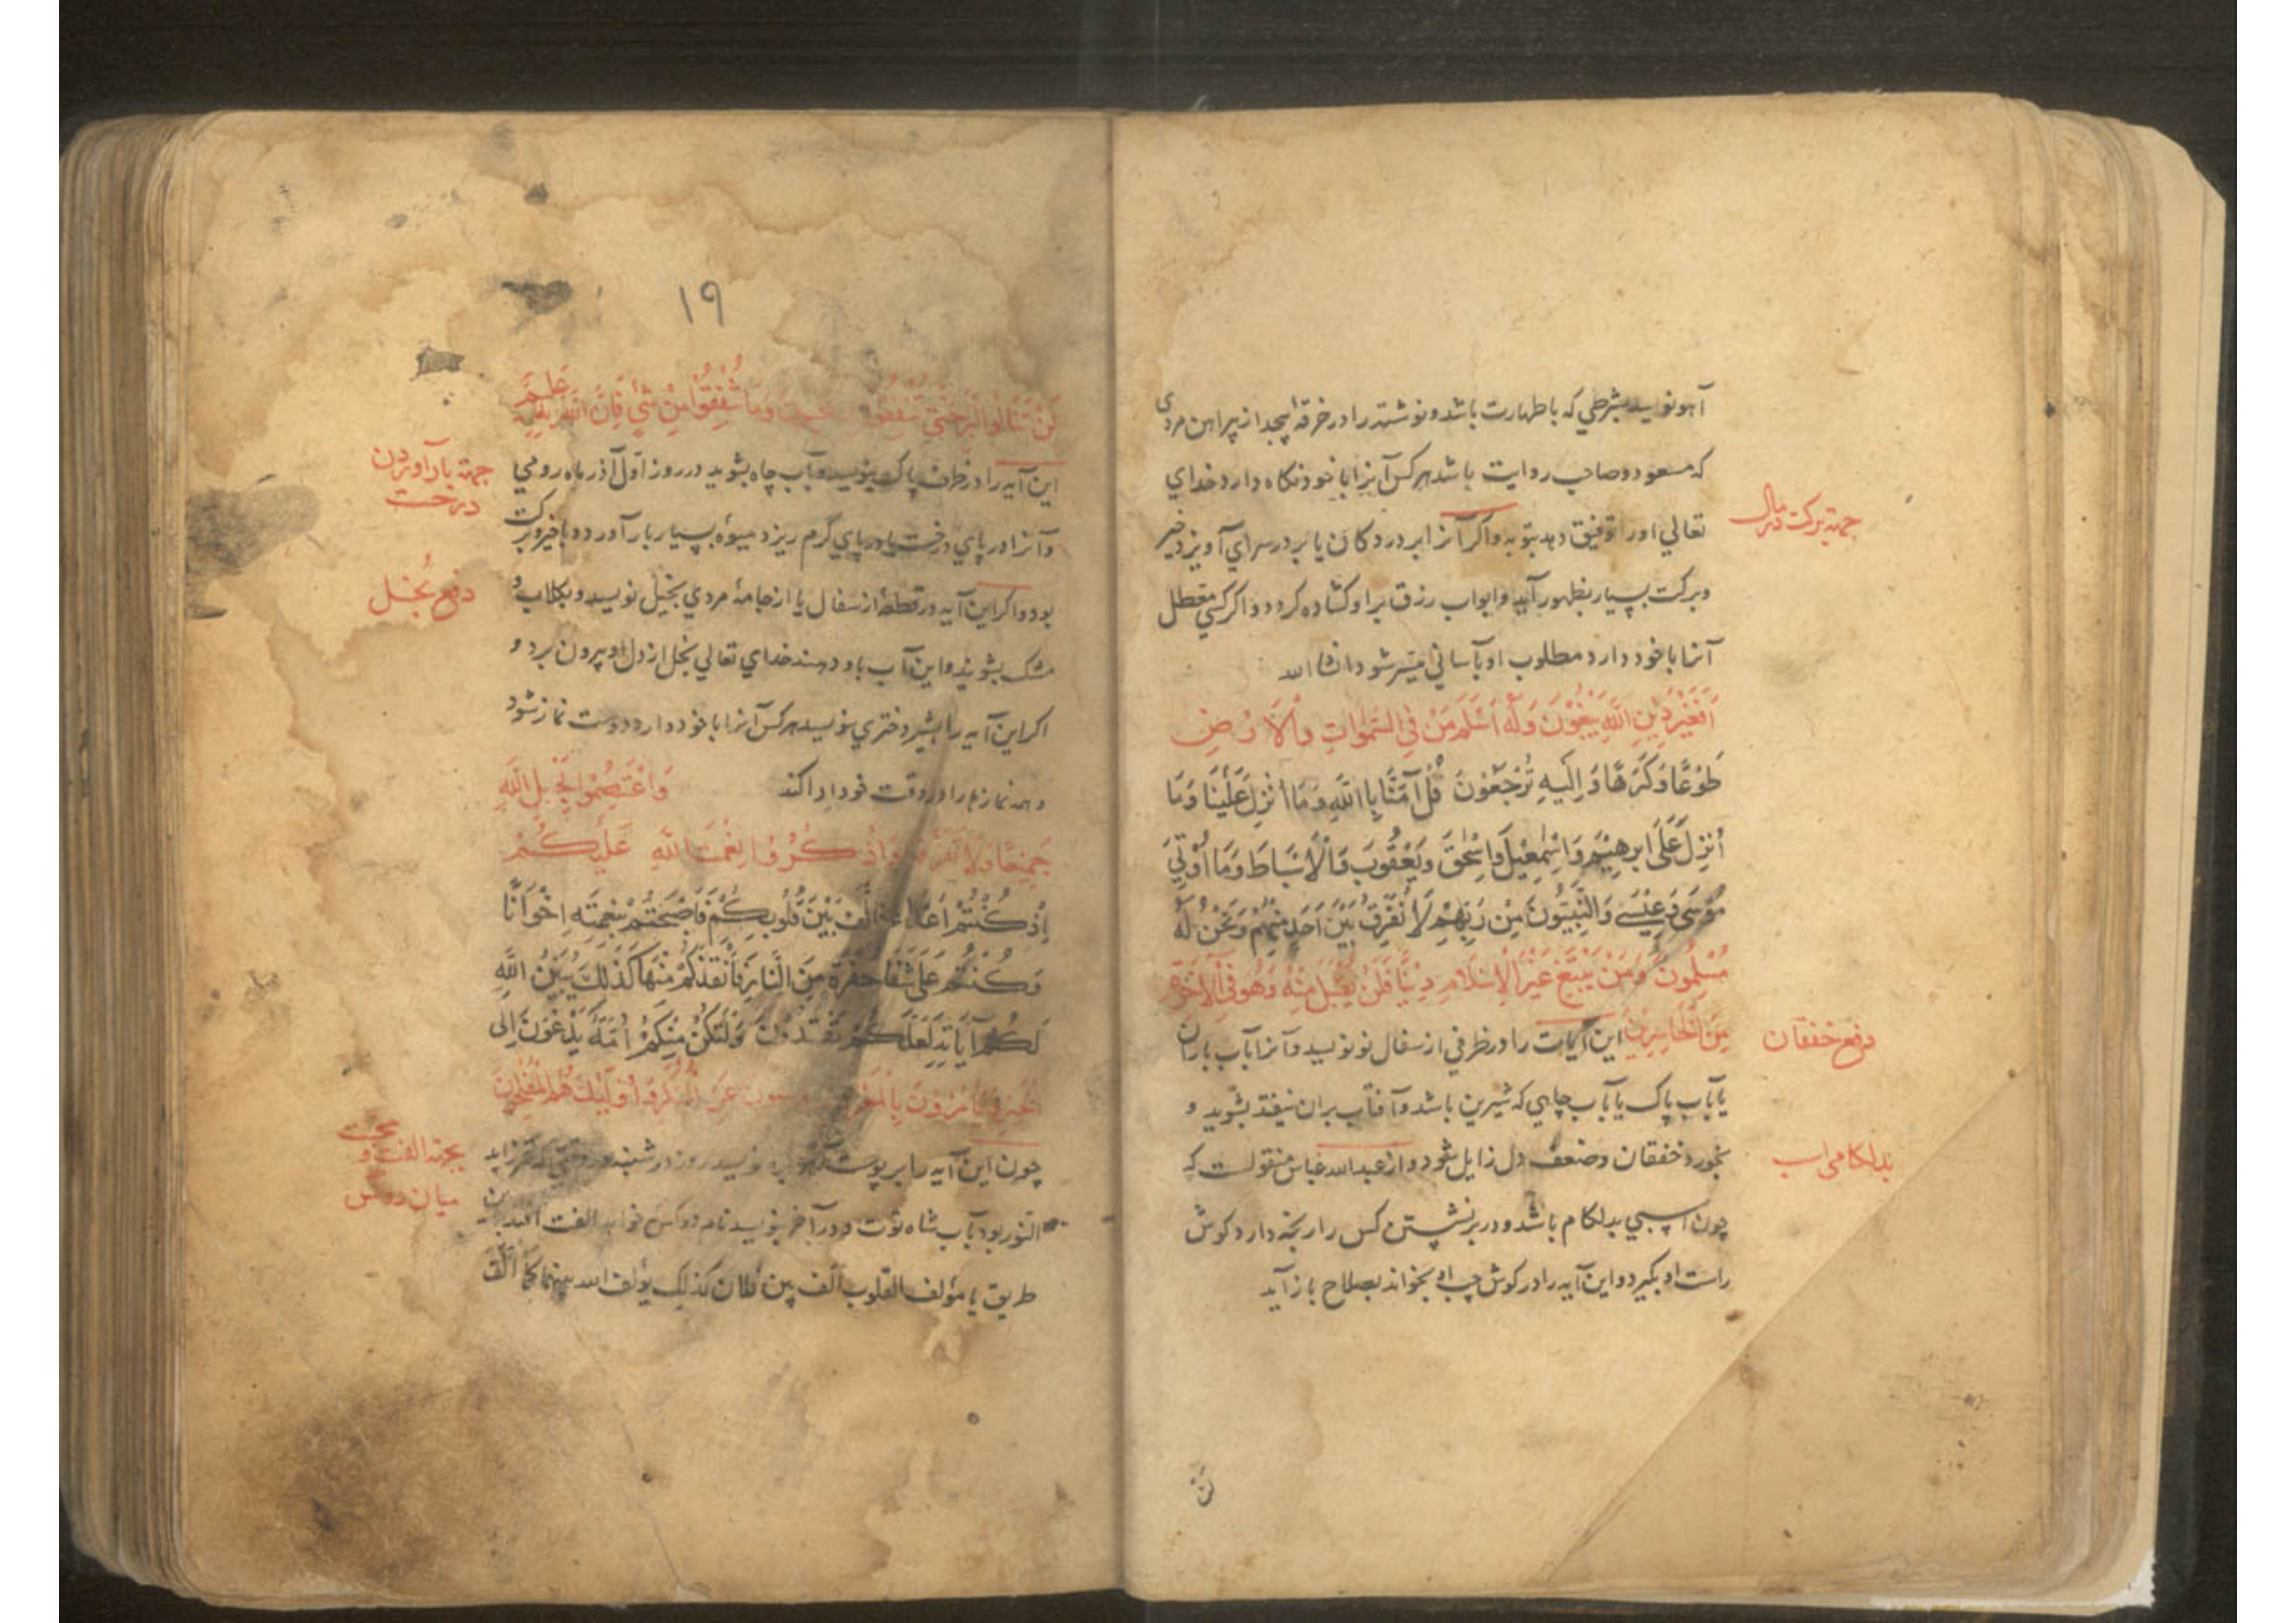 آهو نویسد بشرطی که با طهارت باشد و نوشته را در خرقه پیچد از پیراهن مردی
که مسعود و صاحب روایت باشد هر کس آنرا با خود نگاه دارد خدای
تعالی او را توفیق دهد بتوبه و اگر آنرا بر در دکان یا بر در سرای آویزد خیر
جهة برکت در مال
و برکت بسیار بظهور آید و ابواب رزق بر او گشاده گردد و اگر کسی معطل
آنرا با خود دارد مطلوب او بآسانی میسر شود انشا الله
اَفَغَيْرَ دِينِ اللَّهِ يَبْغُونَ وَلَهُ اَسْلَمَ مَنْ فِي السَّمَوَاتِ وَالْاَرْضِ
طَوْعًا وَكَرْهًا وَاِلَيْهِ تُرْجَعُونَ قُلْ آمَنَّا بِاللَّهِ وَمَا اُنْزِلَ عَلَيْنَا وَمَا
اُنْزِلَ عَلَى ابرهيم وَاِسْمعِيلَ وَاِسْحقَ وَيَعْقُوبَ وَالْاَسْبَاطِ وَمَا اُوتِيَ
مُوسَى وَعِيسَى وَالنَّبِيُّونَ مِنْ رَبِّهِمْ لَا نُفَرِّقُ بَيْنَ اَحَدٍ مِنْهُمْ وَنَحْنُ لَهُ
مُسْلِمُونَ وَمَنْ يَبْتَغِ غَيْرَ الْاِسْلَامِ دِينًا فَلَنْ يُقْبَلَ مِنْهُ وَهُوَ فِي الْآخِرَةِ
مِنَ الْخَاسِرِينَ این آیات را در ظرفی از سفال نو نویسد و آنرا بآب باران
دفع خفقان
یا بآب پاک یا بآب چاهی که شیرین باشد و آفتاب بران نیفتد بشوید و
بخورد خفقان و ضعف دل زایل شود و از عبدالله عباس منقولست که
بدلکامی اسب
چون اسبی بدلکام باشد و در برنشستن کس را رنجه دارد کوش
راست او بگیرد و این آیه را در کوش چپ او بخواند بصلاح باز آید
لن
١٩
لَنْ تَنَالُوا الْبِرَّ حَتَّى تُنْفِقُوا وَمَا تُنْفِقُوا مِنْ شَيْءٍ فَاِنَّ اللَّهَ بِهِ عَلِيمٌ
این آیه را در ظرف پاک بنویسد و بآب چاه بشوید در روز اول آذر ماه رومی
جهة بار آوردن
درخت
و آنرا در پای درخت یا در پای کرم ریزد میوه بسیار بار آورد و با خیر و برکت
بود و اگر این آیه در قطعهٔ از سفال یا از جامهٔ مردی بخیل نویسد و بکلاب و
دفع بخل
مشک بشویند و این آب باو دهند خدای تعالی بخل از دل او بیرون برد و
اگر این آیه را بشیر دختری نویسد هر کس آنرا با خود دارد دوست نماز شود
و همه نمازها را در وقت خود ادا کند وَاعْتَصِمُوا بِحَبْلِ اللَّهِ
جَمِيعًا وَلَا تَفَرَّقُوا وَاذْكُرُوا نِعْمَتَ اللَّهِ عَلَيْكُمْ
اِذْ كُنْتُمْ اَعْدَاءً فَاَلَّفَ بَيْنَ قُلُوبِكُمْ فَاَصْبَحْتُمْ بِنِعْمَتِهِ اِخْوَانًا
وَكُنْتُمْ عَلَى شَفَا حُفْرَةٍ مِنَ النَّارِ فَاَنْقَذَكُمْ مِنْهَا كَذَلِكَ يُبَيِّنُ اللَّهُ
لَكُمْ آيَاتِهِ لَعَلَّكُمْ تَهْتَدُونَ وَلْتَكُنْ مِنْكُمْ اُمَّةٌ يَدْعُونَ اِلَى
الْخَيْرِ وَيَأْمُرُونَ بِالْمَعْرُوفِ عَنِ الْمُنْكَرِ وَاُولَئِكَ هُمُ الْمُفْلِحُونَ
چون این آیه را بر پوست آهو نویسد روز دوشنبه
بجهة الفت و محبت
میان دو کس
النور بود بآب شاه توت و در آخر بنویسد نام دو کس الفت
طریق یا مؤلف القلوب الف بین فلان کذلک یؤلف الله بینهما کما الف